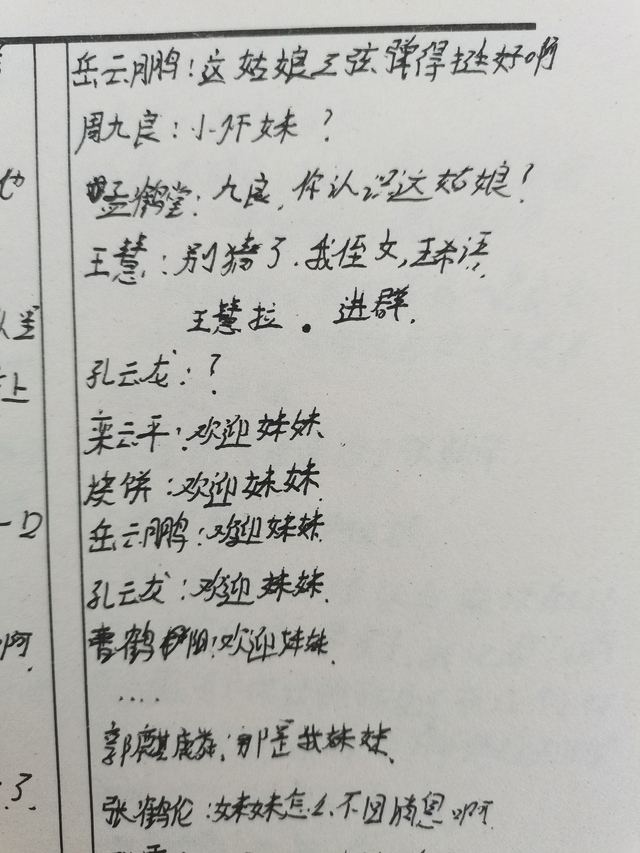 岳云鹏:这姑娘三弦弹得挺好啊
周九良:小师妹?
孟鹤堂:九良,你认识这姑娘?
王慧:别猜了.我侄女,王希语
王慧拉 . 进群.
孔云龙:?
栾云平:欢迎妹妹
烧饼:欢迎妹妹
岳云鹏:欢迎妹妹
孔云龙:欢迎妹妹.
曹鹤阳:欢迎妹妹.
....
郭麒麟:那是我妹妹.
张鹤伦:妹妹怎么不回消息啊
他
上
一口
啊.
了.